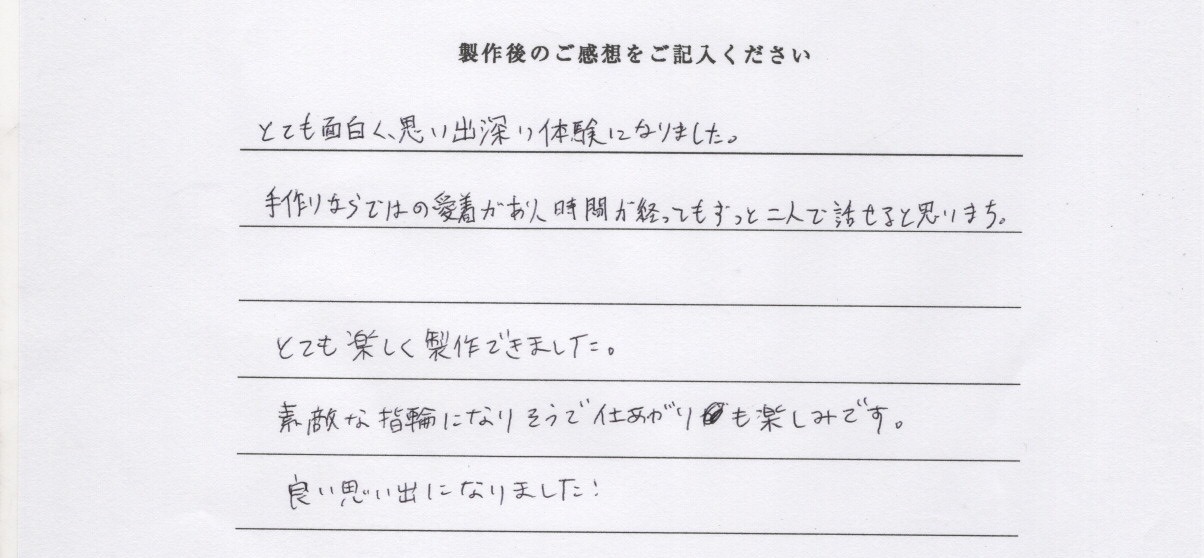 製作後のご感想をご記入ください
とても面白く、思い出深い体験になりました。
手作りならではの愛着があり、時間が経ってもずっと二人で話せると思います。
とても楽しく製作できました。
素敵な指輪になりそうで仕あがりも楽しみです。
良い思い出になりました！